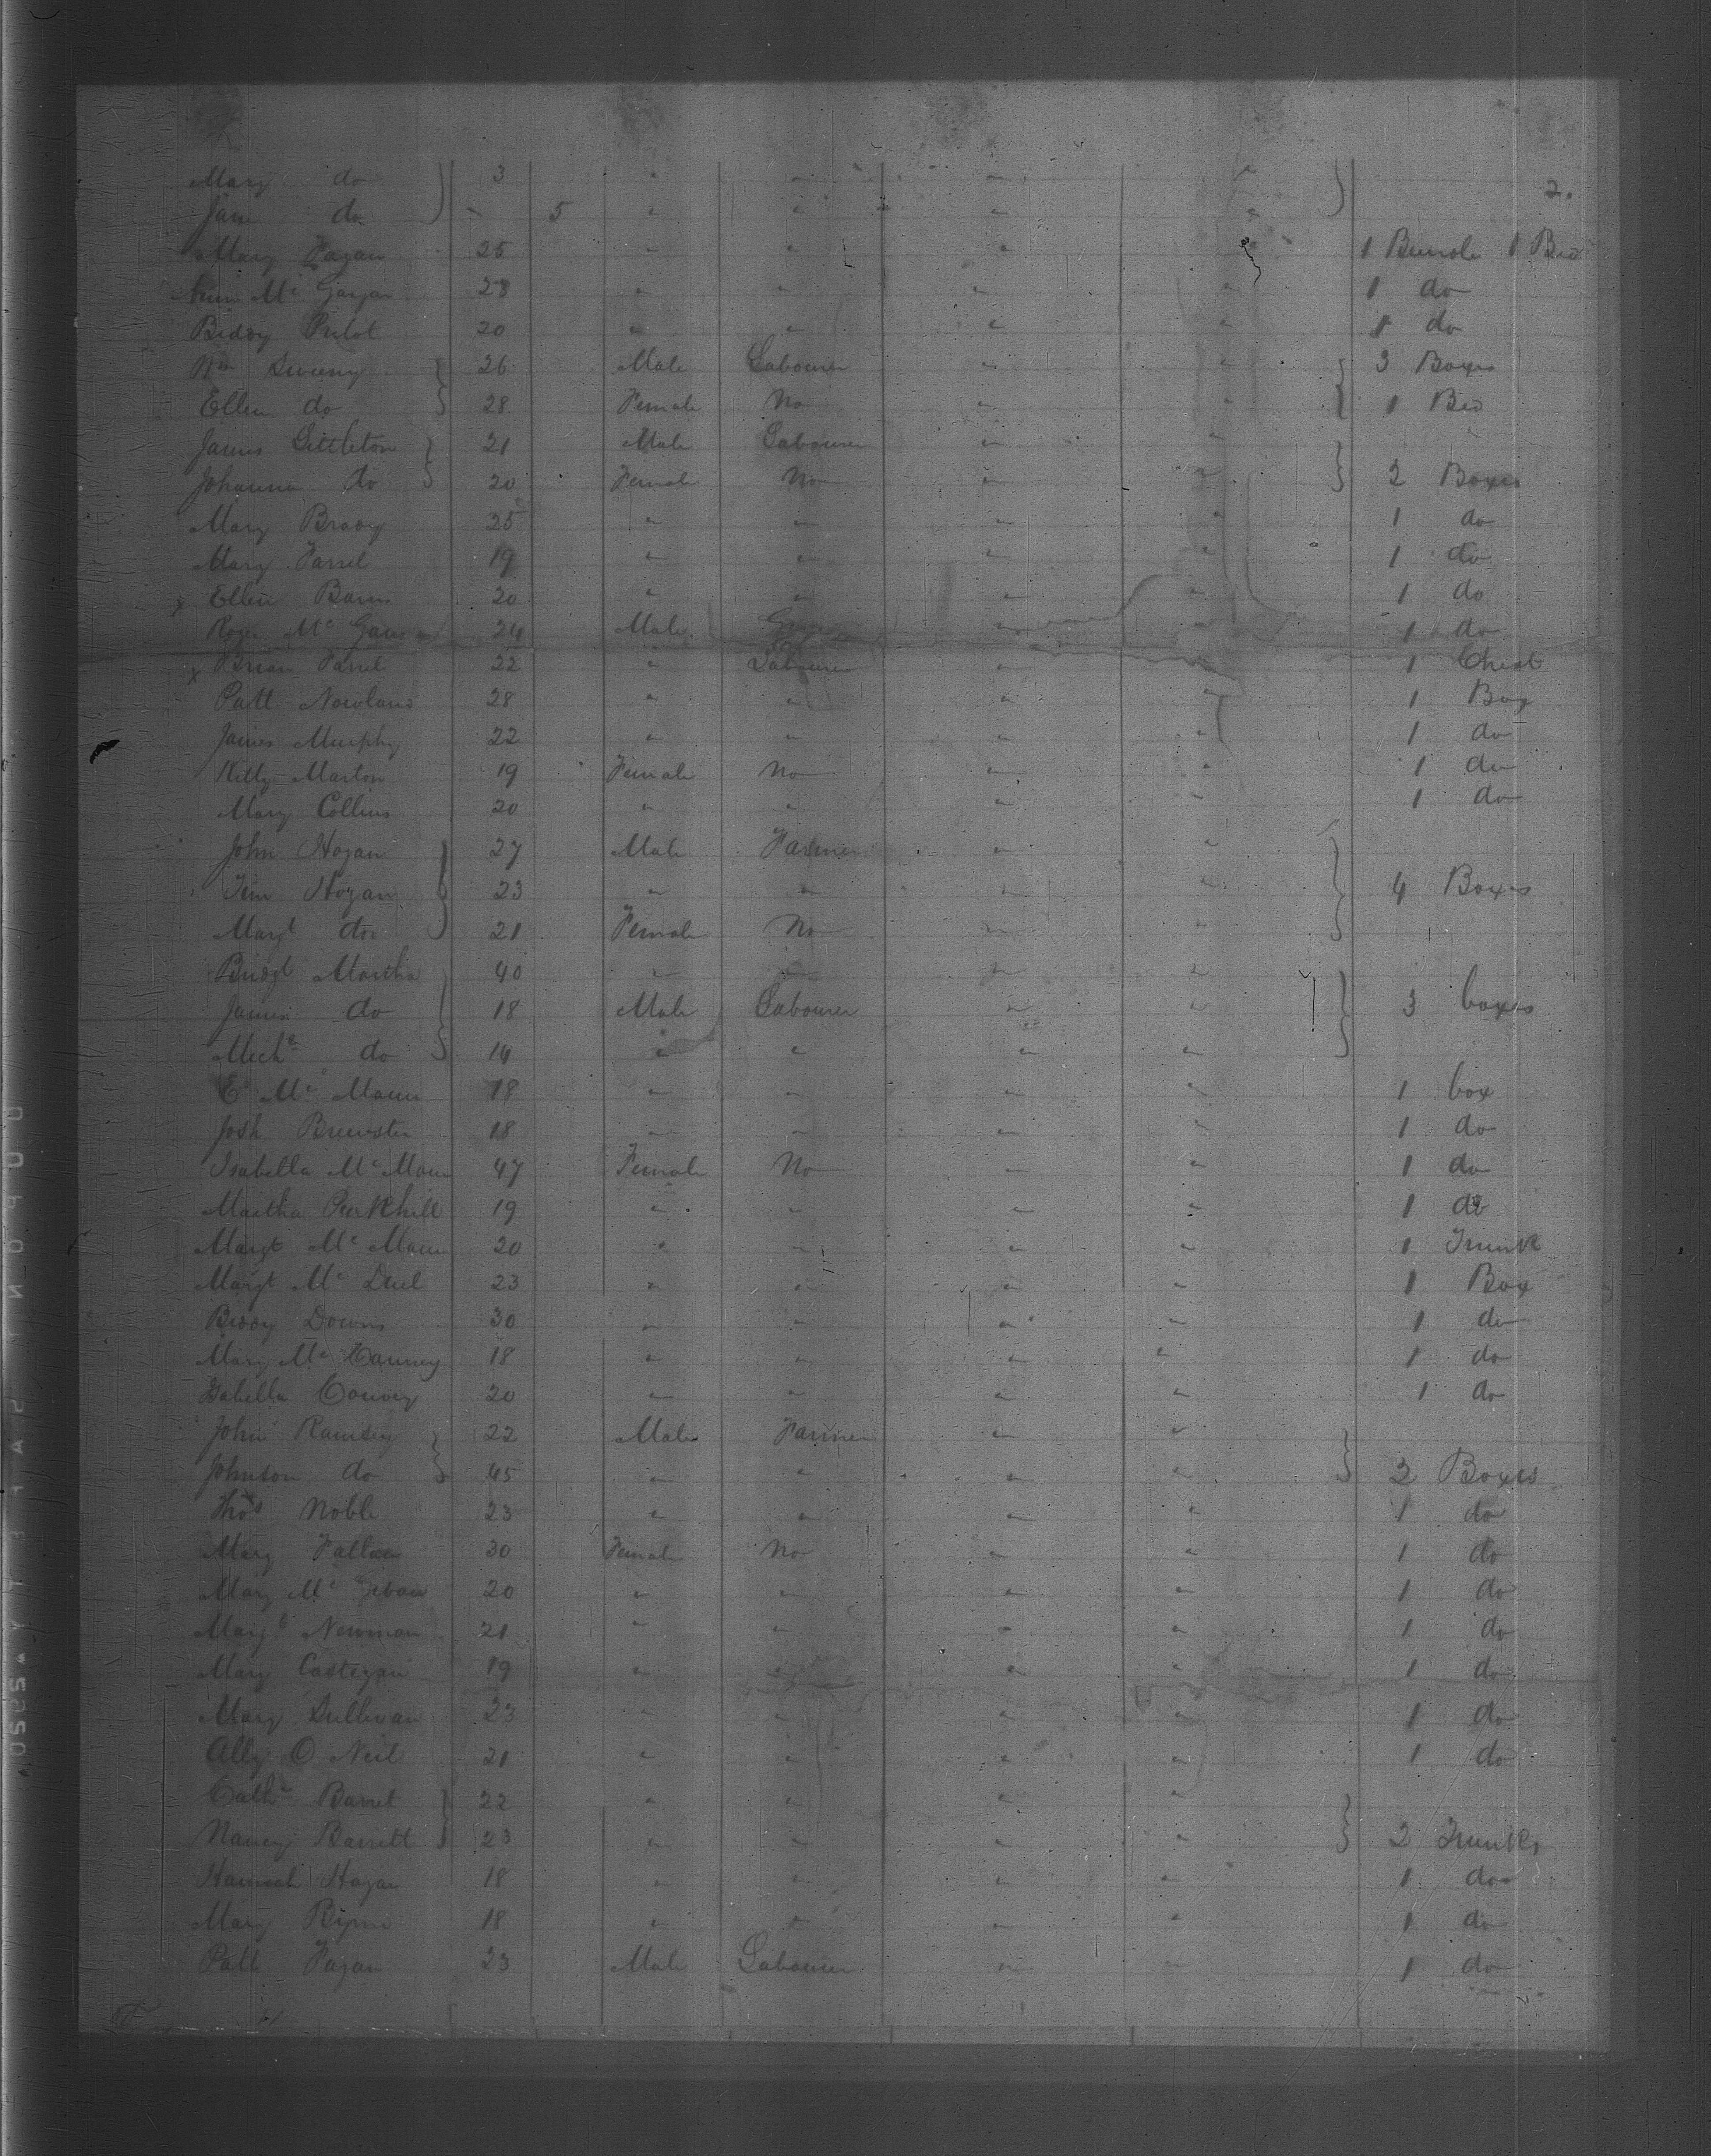 2.
Mary do 3 " " " "
Jane do - 5 " " " "
Mary Fagan 25 " " " " 1 Bundle 1 Bed
Ann Mc Gargan 28 " " " " 1 do
Biddy Pilot 20 " " " " 1 do
Wm Sweeny 26 Male Labourer " " 3 Boxes
Ellen do 28 Female No " " 1 Bed
James Littleton 21 Male Labourer " "
Johanna do 20 Female No " " 2 Boxes
Mary Brady 25 " " " " 1 do
Mary Farrel 19 " " " " 1 do
x Ellen Barns 20 " " " " 1 do
Mc 24 Male " " 1 do
x Brian Farrel 22 " Labourer " " 1 Chest
Patt Nowland 28 " " " " 1 Box
James Murphy 22 " " " " 1 do
Kitty Marton 19 Female No " " 1 do
Mary Collins 20 " " " " 1 do
John Hogan 27 Male Farmer " "
Tim Hogan 23 " " " " 4 Boxes
Margt do 21 Female No " "
Bridgt Martha 40 " " " "
James do 18 Male Labourer " " 3 boxes
Michl do 14 " " " "
E Mc Mann 18 " " " " 1 box
Josh Brewster 18 " " " " 1 do
Isabella Mc Mann 47 Female No " " 1 do
Martha Purkhill 19 " " " " 1 do
Margt Mc Mann 20 " " " " 1 Trunk
Margt Mc 23 " " " " 1 Box
Biddy Downs 30 " " " " 1 do
Mary Mc 18 " " " " 1 do
Isabella Convey 20 " " " " 1 do
John Ramsey 22 Male Farmer " "
Johnson do 45 " " " " 2 Boxes
Thos Noble 23 " " " " 1 do
Mary Fallon 30 Female No " " 1 do
Mary Mc 20 " " " " 1 do
Margt Newman 21 " " " " 1 do
Mary Costegan 19 " " " " 1 do
Mary Sullivan 23 " " " " 1 do
Ally O Neil 21 " " " " 1 do
Cathn Barret 22 " " " "
Nancy Barrett 23 " " " " 2 Trunks
Hannah Hagan 18 " " " " 1 do
Mary Byrne 18 " " " " 1 do
Patt Fagan 23 Male Labourer " " 1 do